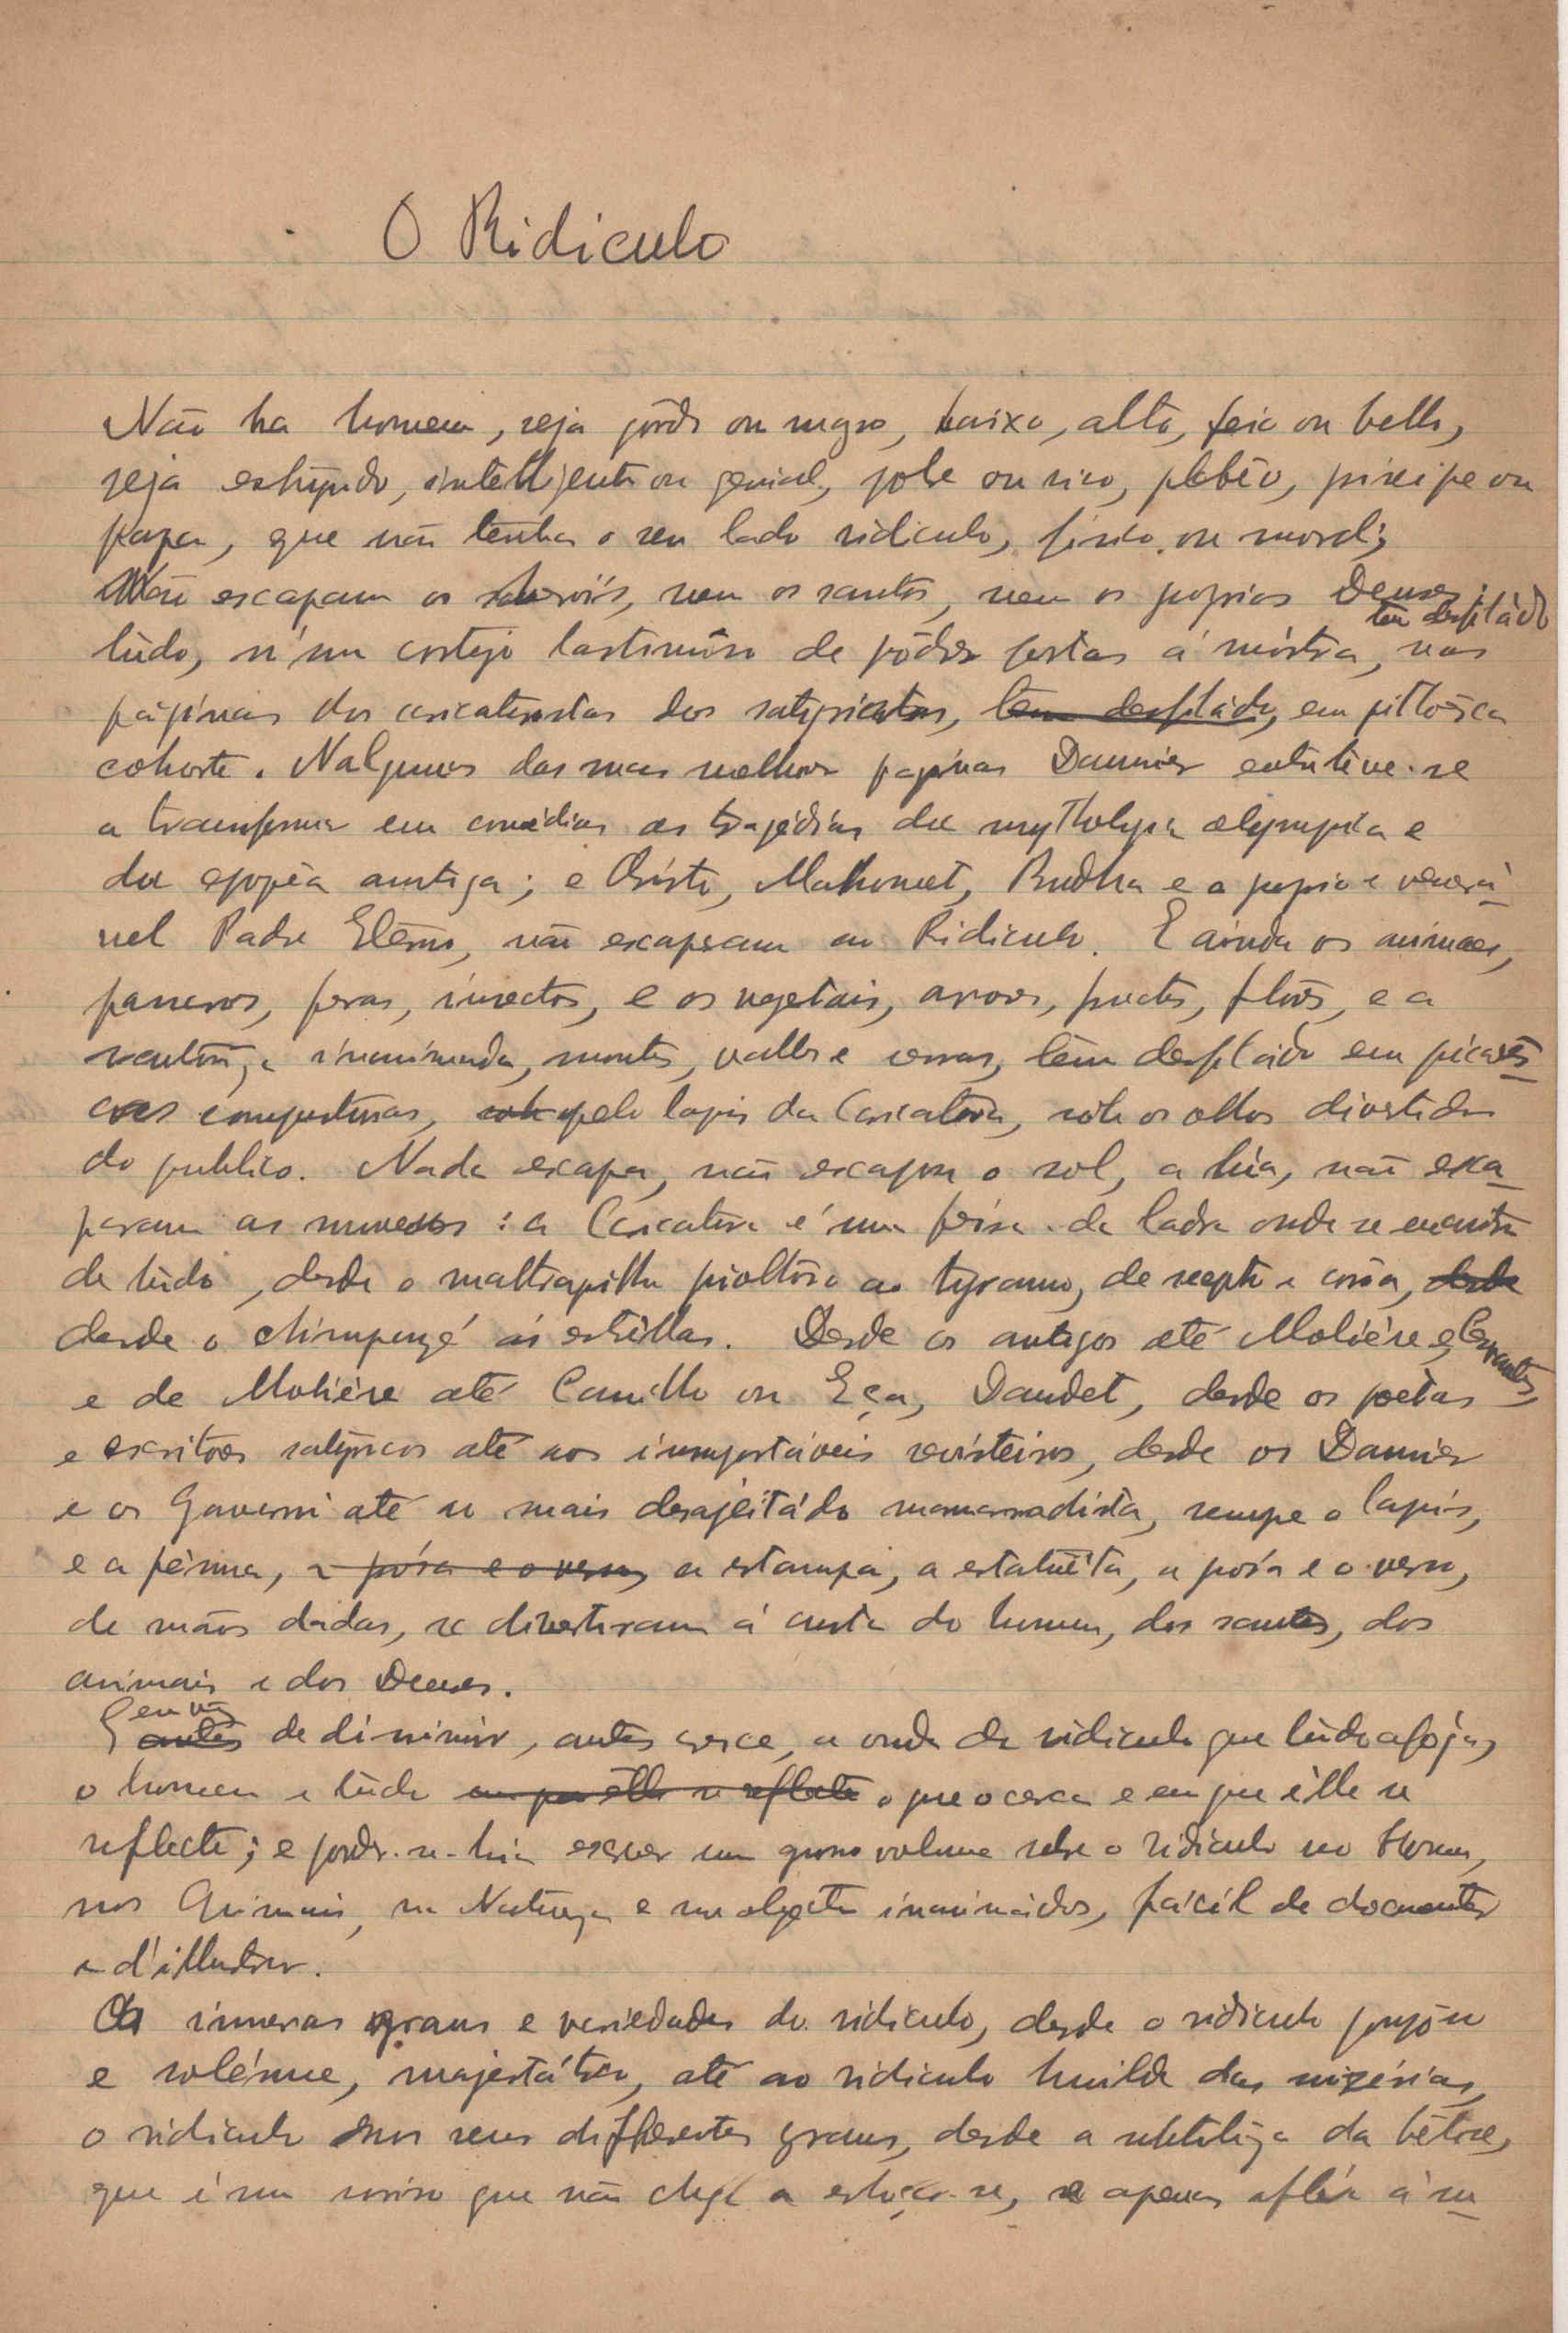 O Ridiculo
Não ha homem, seja górdo ou magro, baixo, alto, feio ou bello,
seja estúpido, intelligente ou genial, pobe ou rico, plebêo, principe ou
papa, que não tenha o seu lado ridiculo, fisico ou moral;
Não escapam os heróis, nem os santos, nem os propios Deuses;
têm desfiládo
túdo, n'um cortejo lastimôso de pôdres postas á móstra, nas
páginas dos caricaturistas dos satyricos, têm desfiládo, em pittorêsca
cohorte. Nalgumas das suas melhores paginas Daumier entreteve-se
a transformar em comédias as tragédias da mythologia olympica e
da epopêa antiga; e Cristo, Mahomet, Budha e o propio e venerá-
vel Padre Etérno, não escaparam ao Ridiculo. E ainda os animaes,
passaros, feras, insectos, e os vegetais, arvores, fructos, flôres, e a
natureza inanimada, montes, valles e serras, têm desfilado em picarês-
cas composturas, pelo lapis da Caricatura, sob os olhos divertidos
do publico. Nada escapa, não escapou o sol, a lúa, não esca-
param as nuvens: a Caricatura é uma feira da ladra onde se encontra
de túdo, desde o maltrapilho piolhôso ao tyranno, de sceptro e corôa, desde
desde o chimpanzé ás estrellas. Desde os antigos até Molière, e Cervantes,
e de Molière até Camillo ou Eça, Daudet, desde os poetas
e escritores satyricos até aos insuportáveis revisteiros, desde os Daumier
e os Gavarni até ao mais desajeitádo mamarrachista, sempre o lapis,
e a pênna, a prósa e o verso, a estampa, a estatuêta, a prósa e o verso,
de mãos dadas, se divertiram á custa do homem, dos santos, dos
animais e dos Deuses.
em vez
E antes de diminuir, antes cresce, a onda de ridiculo que túdo afóga,
o homem e túdo em que êlle se reflecte o que o cerca e em que êlle se
reflecte; e poder-se-hia escrever um grosso volume sobre o ridiculo no Homem,
nos Animais, na Natureza e nos objectos inanimádos, fácil de documentar
e d'illustrar.
Os inumeros graus e variedades do ridiculo, desde o ridiculo pompôso
e solémne, majestático, até ao ridiculo humilde das misérias,
o ridiculo nos seus differentes graus, desde a subtileza da bêtise,
que é um sorriso que não chega a esboçar-se, e apenas aflóra á su-